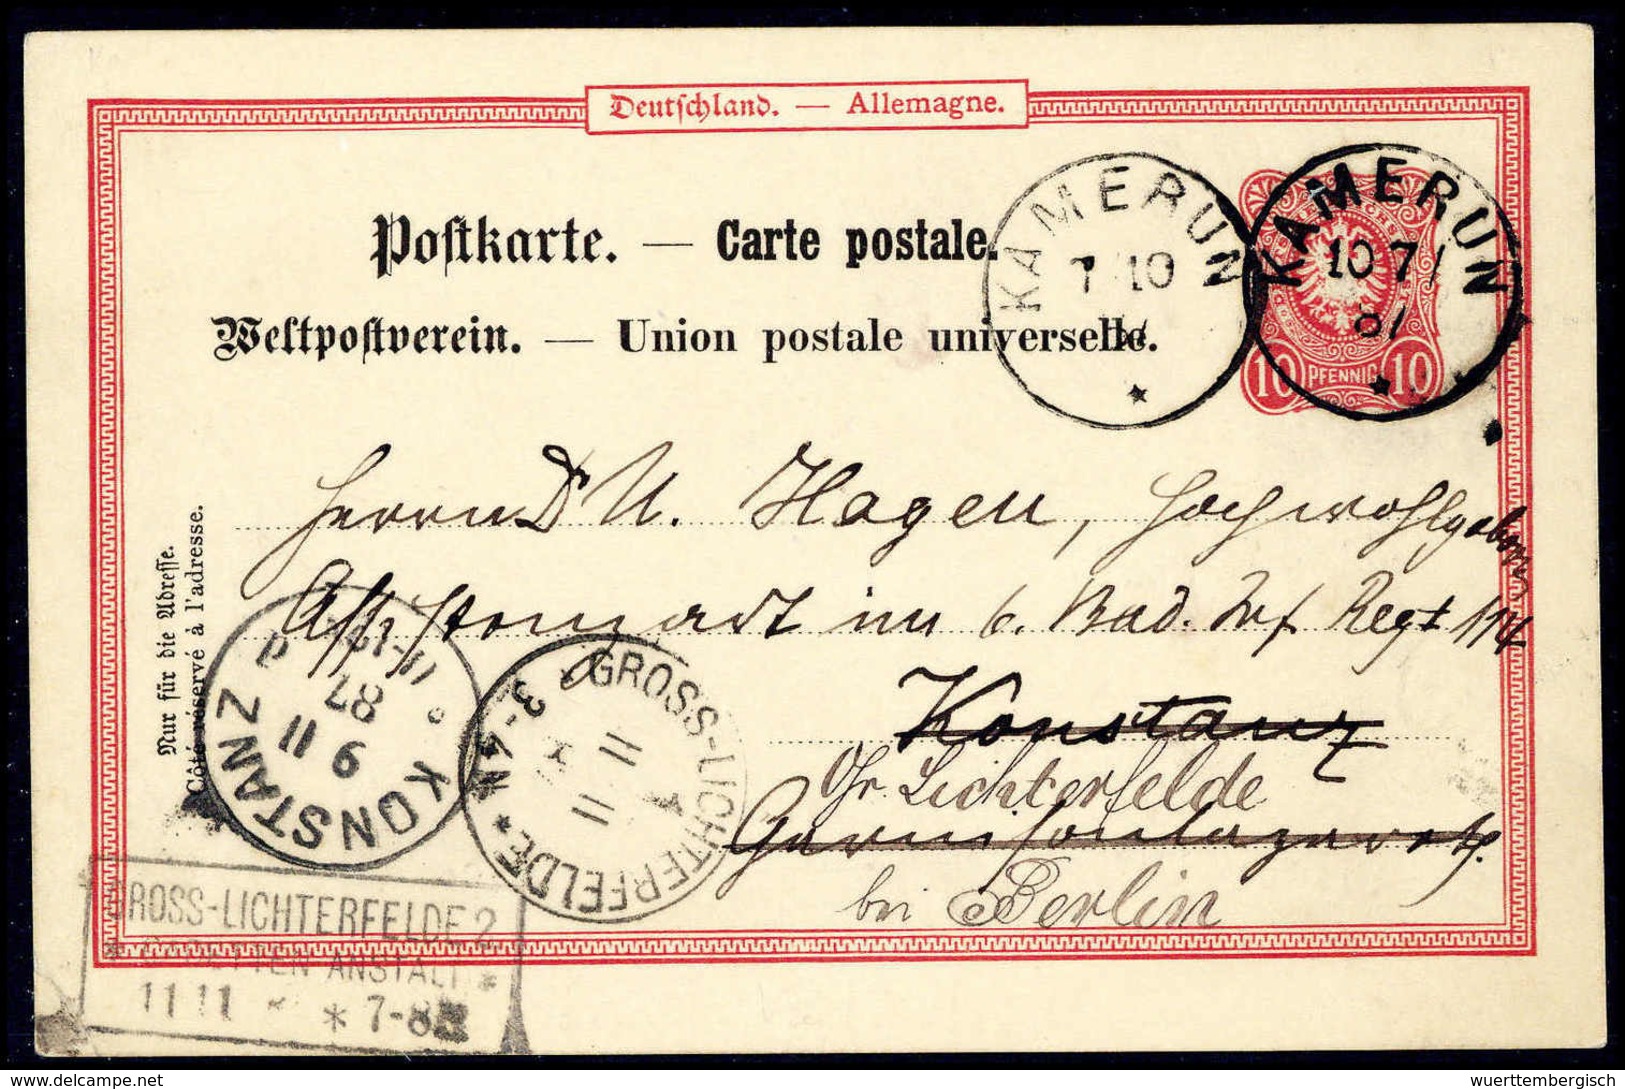 Deutschland. — Allemagne.
Postkarte. — Carte postale.
Weltpostverein. — Union postale universelle.
KAMERUN
7/10
*
KAMERUN
10 7/
87
*
10 PFENNIG 10
Herrn Dr U. Hagen, Hochwohlgeboren
im 6. Bad. Inf Regt 114
Konstanz
Gr. Lichterfelde
bei Berlin
Nur für die Adresse.
Côté réservé à l'adresse.
KONSTANZ
9 11
87
11-12
GROSS-LICHTERFELDE *
11 11
3-4N
GROSS-LICHTERFELDE 2
* CADETTEN ANSTALT *
11 11 * 7-8
delcampe.net
wuerttembergisch